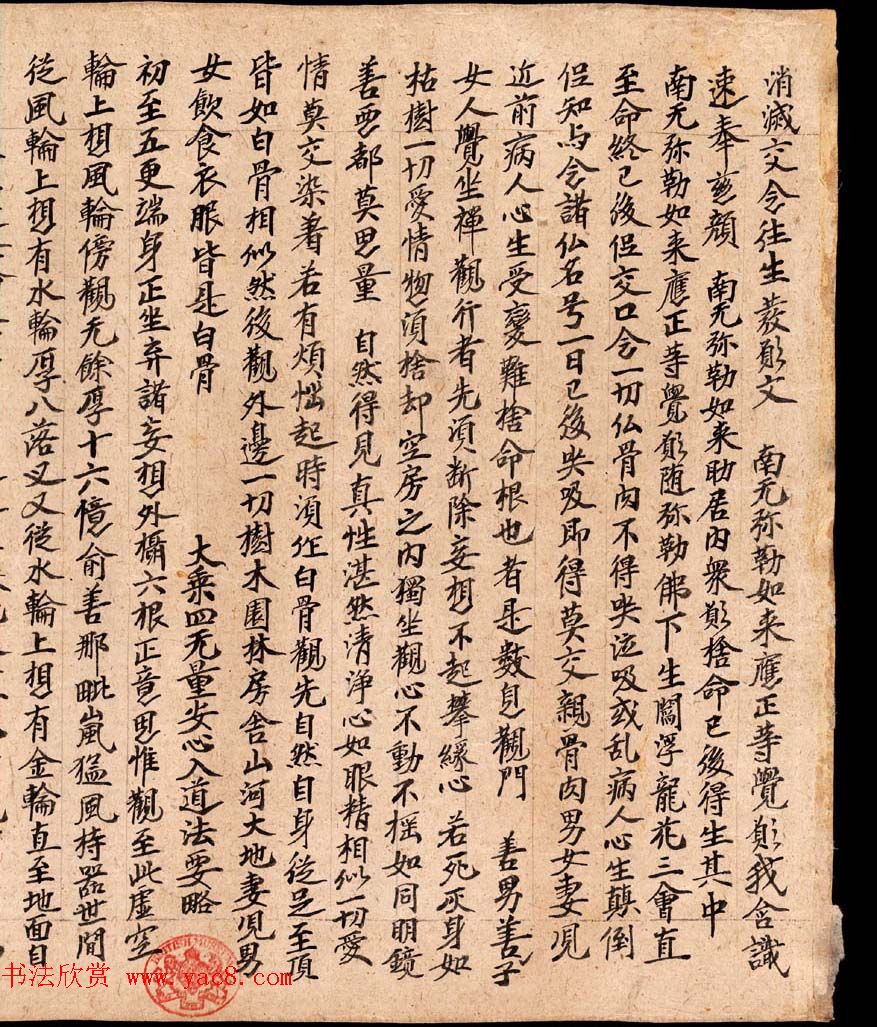 消滅交令往生發願文　南无弥勒如来應正等覺願我含識
速奉慈顔　南无弥勒如来助居内衆願捨命已後得生其中
南无弥勒如来應正等覺願随弥勒佛下生閻浮龍花三會直
至命終已後但交口令一切仏骨肉不得哭泣吸或乱病人心生顛倒
但知与念諸仏名号一日已後哭吸即得莫交親骨肉男女妻児
近前病人心生受䜌難捨命根也者是數息觀門　善男善子
女人覺坐禪觀行者先須断除妄想不起攀縁心　若死灰身如
枯樹一切愛情惣須捨却空房之内獨坐觀心不動不揺如同明鏡
善悪都莫思量　自然得見真性湛然清浄心如眼精相似一切愛
情莫交染着若有煩惱起時須作白骨觀先自然自身從足至頂
皆如白骨相似然後觀外邊一切樹木園林房舎山河大地妻児男
女飲食衣服皆是白骨　大乘四无量安心入道法要略
初至五更端身正坐弃諸妄想外攝六根正意思惟觀至此虚空
輪上想風輪傍觀无餘厚十六憶俞善那毗嵐猛風持器世間
從風輪上想有水輪厚八落叉又從水輪上想有金輪直至地面自
书法欣赏 www.yac8.com